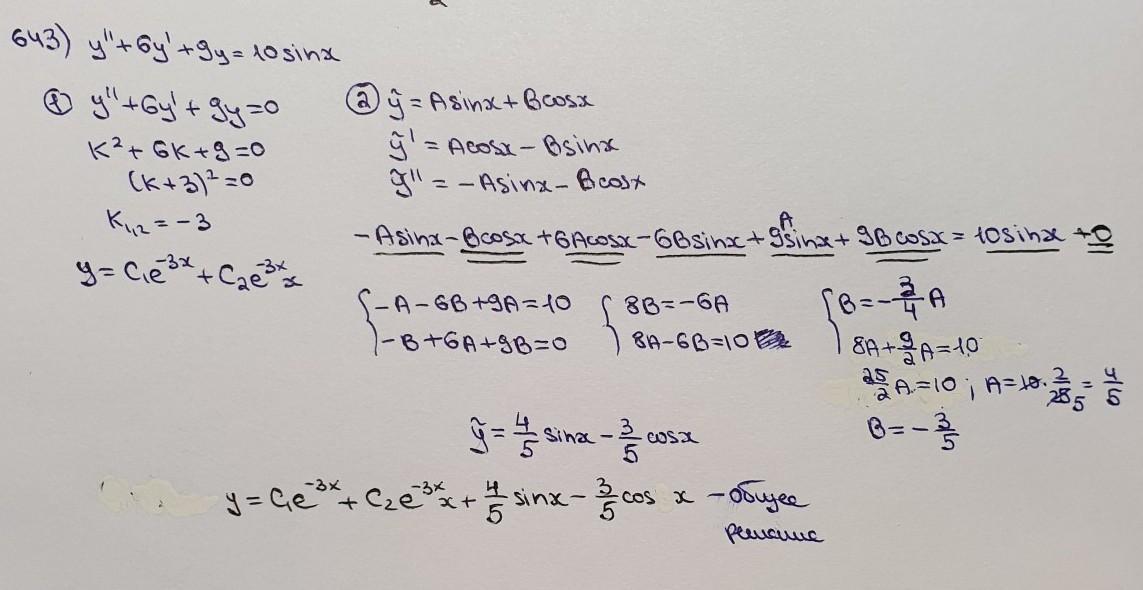 643) y'' + 6y' + 9y = 10 sinx
① y'' + 6y' + 9y = 0
k² + 6k + 9 = 0
(k+3)² = 0
k₁,₂ = -3
y = C₁e⁻³ˣ + C₂e⁻³ˣx
② ỹ = Asinx + Bcosx
ỹ' = Acosx - Bsinx
ỹ'' = -Asinx - Bcosx
-Asinx - Bcosx + 6Acosx - 6Bsinx + 9Asinx + 9Bcosx = 10sinx + 0
{ -A - 6B + 9A = 10 { 8B = -6A { B = -3/4 A
-B + 6A + 9B = 0 8A - 6B = 10 8A + 9/2 A = 10
25/2 A = 10 ; A = 10 · 2/25 5 = 4/5
B = -3/5
ỹ = 4/5 sinx - 3/5 cosx
y = C₁e⁻³ˣ + C₂e⁻³ˣx + 4/5 sinx - 3/5 cos x - общее
решение